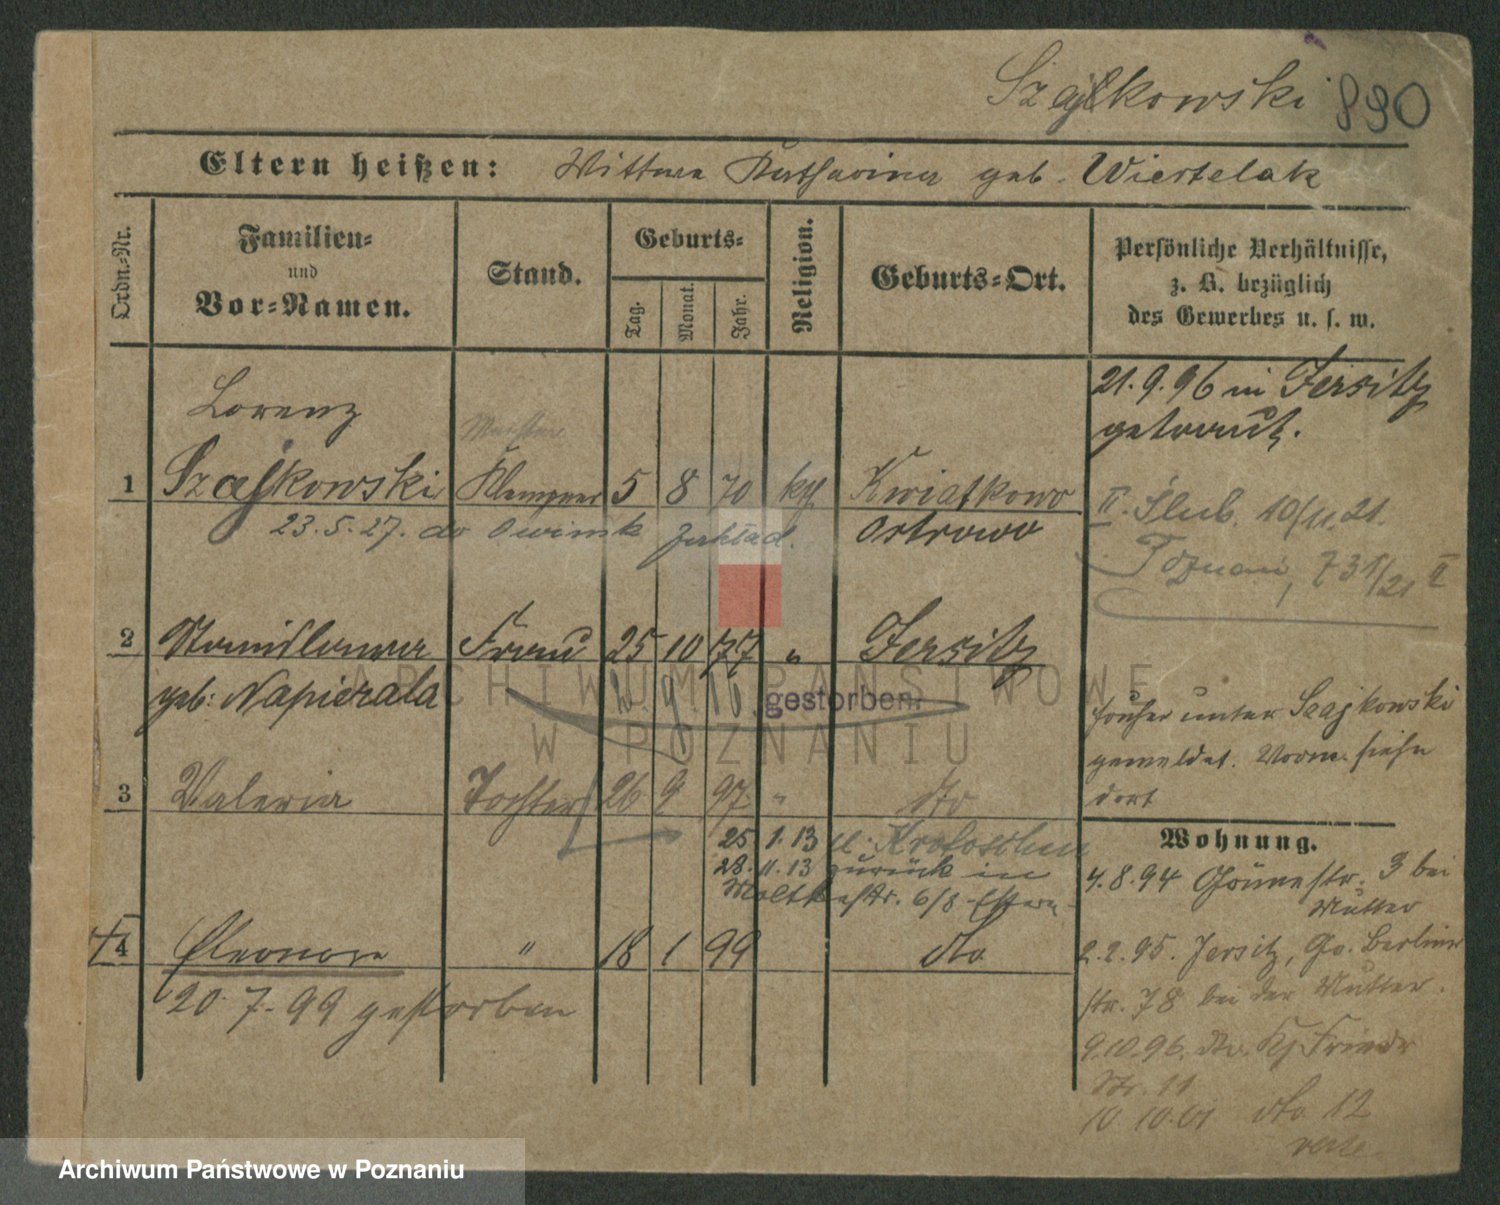 Szajkowski 890
Eltern heißen: Wittwe Katharina geb. Wiertelak
Ordn.-Nr.
Familien-
und
Vor-Namen.
Stand.
Geburts-
Tag.
Monat.
Jahr.
Religion.
Geburts-Ort.
Persönliche Verhältnisse,
z. B. bezüglich
des Gewerbes u. s. w.
Lorenz
1 Szajkowski Klempner 5 8 70 kgl Kwiatkowo
23.5.27. do Owinsk Zakład. Ostrowo
21.9.96 in Jersitz
getraut.
II. Ślub. 10/11.21.
Poznań, 731/21 II
2 Stanislawa Frau 25 10 77 " Jersitz
geb: Napierala 9 16 gestorben.
früher unter Szajkowski
gemeldet. Vorm. siehe
dort
3 Valeria Tochter 26 9 97 " dto
25 1.13 Krotoschin
28.11.13 zurück in
Moltkestr. 6/8 Eltern
4 Eleonore " 18 1 99 dto.
20.7.99 gestorben
Wohnung.
4.8.94 Grünestr. 3 bei
Mutter
2.2.95. Jersitz, Gr. Berliner
str. 78 bei der Mutter.
9.10.96. dto. Friedr
Str. 11
10.10.01 dto 12
verte.
ARCHIWUM PAŃSTWOWE
W POZNANIU
Archiwum Państwowe w Poznaniu